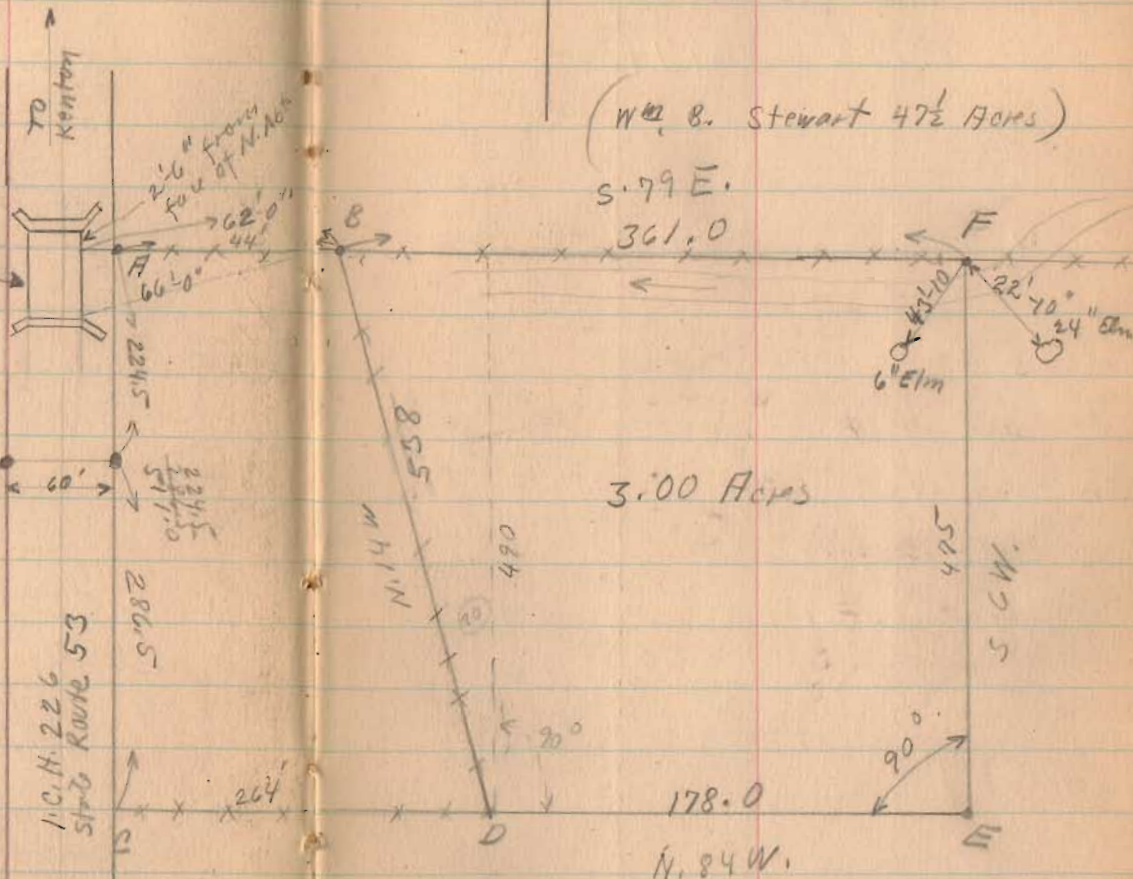 TO
Kenton
2'-6" from
face of N. Abt
62'-0"
44'
66'-0"
A
B
(Wm. B. Stewart 47½ Acres)
S. 79 E.
361.0
F
43'-10
22'-10"
24" Elm
6" Elm
224.5
60'
224.5
286.5
511.0
286.5
I.C.H. 226
State Route 53
558
N. 14 W
490
90°
3.00 Acres
475
S 6 W.
90°
264'
D
178.0
E
N. 84 W.